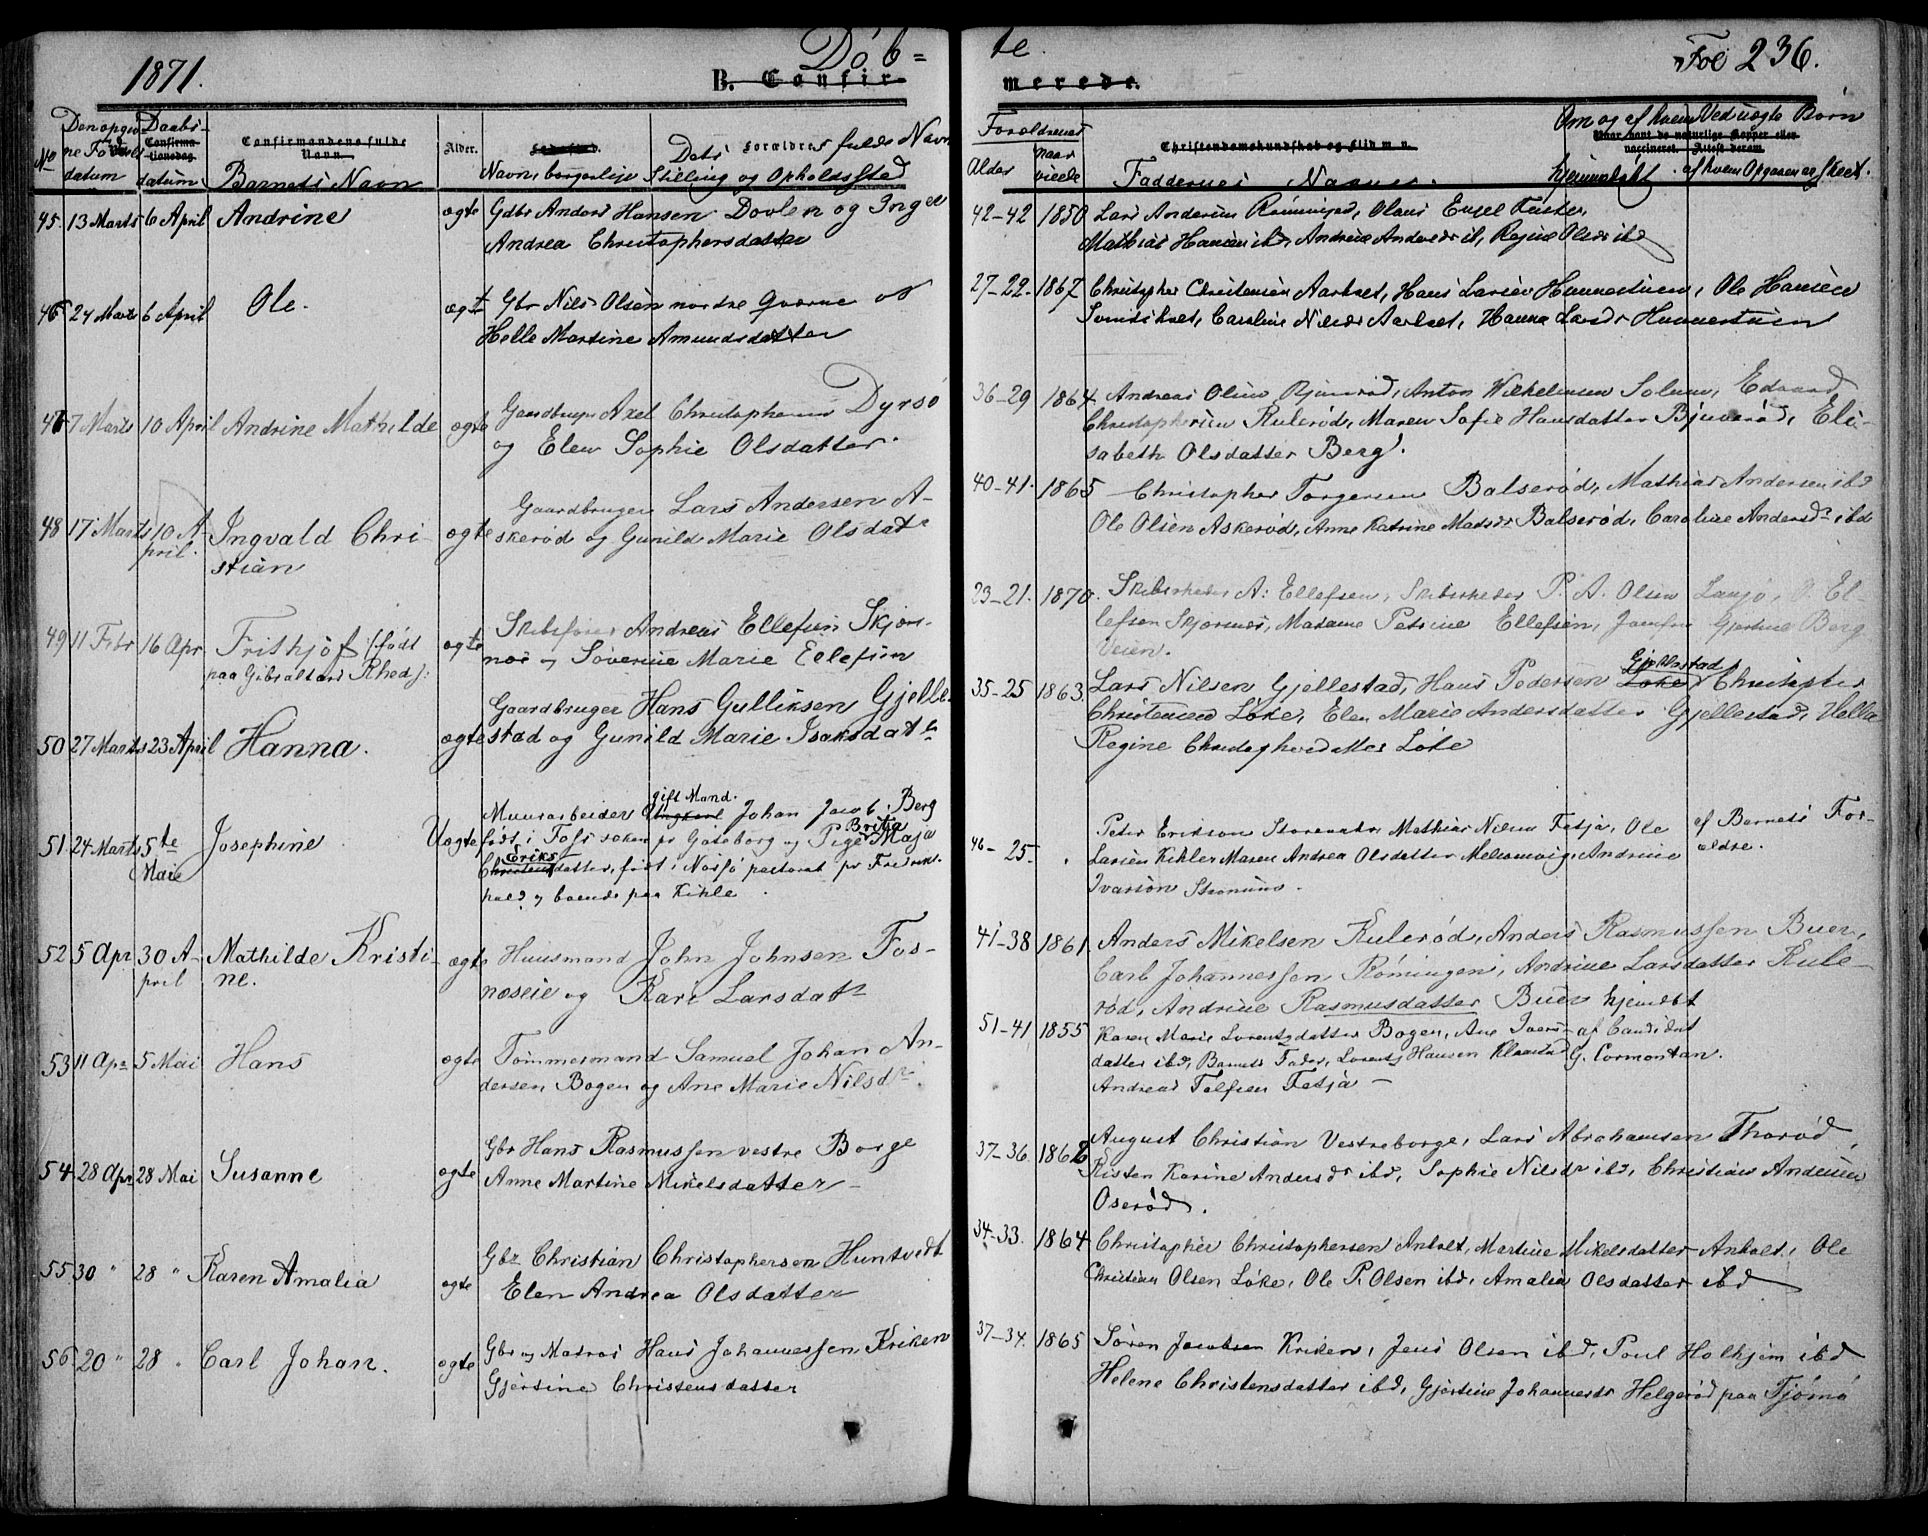 1871. Döb= te. Fol 236.
B. Confir- merede.
No Den opgivne Fødselsdatum Daabsdatum Confirmationsdag. Confirmandens fulde Navn. Barnets Navn Alder. Dets Forældres fulde Navn
Navn, borgerlige Stilling og Opholdssted
Forældrenes Alder naar viede Christendomskundskab og Flid m. v. Faddernes Navne. Om og af hvem hjemmedøbt Ved uægte Børn af hvem Opgaven er skeet.
45. 13 Marts 6 April Andrine ægte Gdbr Anders Hansen Dovlen og Inger
Andrea Christophersdatter
42-42 1850 Lars Andersen Rønningen, Olaus Engel
Mathias Hansen ibd, Andrine Andersdr ib, Regine Olsdr ibd
46 24 Marts 6 April Ole. ægte Gbr Nils Olsen nordre Qværne og
Helle Martine Amundsdatter
27-22. 1867 Christopher Christensen Aarholt, Hans Larsen Hunnestuen, Ole Hansen
Caroline Nilsdr Aarholt, Hanna Larsdr Hunnestuen
47 7 Marts 10 April Andrine Mathilde ægte Gaardbruger Axel Christophersen Dyrsø
og Elen Sophie Olsdatter.
36-29 1864 Andreas Olsen Bjuerød, Anton Wilhelmsen Solum, Edvard
Christophersen Kulerød, Maren Sofie Hansdatter Bjuerød, Eli-
sabeth Olsdatter Berg.
48 17 Marts 10 A-
pril. Ingvald Chri-
stian ægte Gaardbruger Lars Andersen A-
skerød og Gunild Marie Olsdatr
40-41. 1865 Christopher Torgersen Balserød, Mathias Andersen ibd
Ole Olsen Askerød, Anne Katrine Madsdr Balserød, Caroline Andersdr ibd
49 11 Febr 16 Apr Frithjof (født
paa Gibraltars Rhed). ægte Skibsfører Andreas Ellefsen Skjærs-
næs og Severine Marie Ellefsen
23-21. 1870. Skibsrheder A. Ellefsen, Skibsrheder P. A. Olsen O. El-
lefsen Skjærsnæs, Madame Petrine Ellefsen, Jomfru Gjertine Berg
Veien.
50 27 Marts 23 April Hanna. ægte Gaardbruger Hans Gulliksen Gjelle-
stad og Gunild Marie Isaksdatr
35-25 1863 Lars Nilsen Gjellestad, Hans Pedersen Løke Gjellestad, Christopher
Christensen Løke, Elen Marie Andersdatter Gjellestad, Helle
Regine Christophersdatter Løke
51. 24 Marts 5te
Mai Josephine Uægte Muurarbeider Ungkarl gift Mand. Johan Jacob Berg
født i Foss sokn pr Gøteborg og Pige Britta Maja
Christens Eriks datter, født i Norsjø pastorat pr Fredriks-
hald og boende paa Kihle
46-25. Peter Erikson Mathias Nilsen Fetja, Ole
Larsen Kihler Maren Andrea Olsdatter Melsomvig, Andrine
Ivarson
af Barnets For-
ældre.
52 5 Apr 30 A-
pril Mathilde Kristi-
ne. ægte Huusmand John Johnsen Fos-
næseie og Kari Larsdatr
41-38 1861. Anders Mikelsen Kulerød, Anders Rasmussen Buer,
Carl Johannessen Rømingen, Andrine Larsdatter Kule-
rød, Andrine Rasmusdatter Buer
53 11 Apr 5 Mai Hans ægte Tømmermand Samuel Johan An-
dersen, Bogen og Ane Marie Nilsdr.
51-41 1855 Karen Marie Lorentsdatter Bogen, Ane Ivers-
datter ibd, Barnets Fader, Lorents Hansen Klaastad
Andreas Tollefsen Fetja
hjemdøbt
af Candidat
G. Cormontan.
54 28 Apr 28 Mai Susanne ægte Gbr Hans Rasmussen vestre Borge
Anne Martine Mikelsdatter
37-36 1862 August Christian Vestreborge, Lars Abrahamsen Thorød,
Kisten Karine Andersdr ibd, Sophie Nilsdr ibd, Christian Andersen
Oserød.
55 30 " 28 " Karen Amalia ægte Gbr Christian Christophersen Huntvedt
Elen Andrea Olsdatter
34-33. 1864 Christopher Christophersen Anholt, Martine Mikelsdatter Anholt, Ole
Christian Olsen Løke, Ole P. Olsen ibd, Amalia Olsdatter ibd
56 20 " 28 " Carl Johan. ægte Gbr og Matros Hans Johannessen Kriken
Gjertine Christensdatter
37-34. 1865 Søren Jacobsen Kriken, Jens Olsen ibd, Poul Holkjøm ibd
Helene Christensdatter ibd, Gjertine Johannesdr Helgerød paa Tjømø